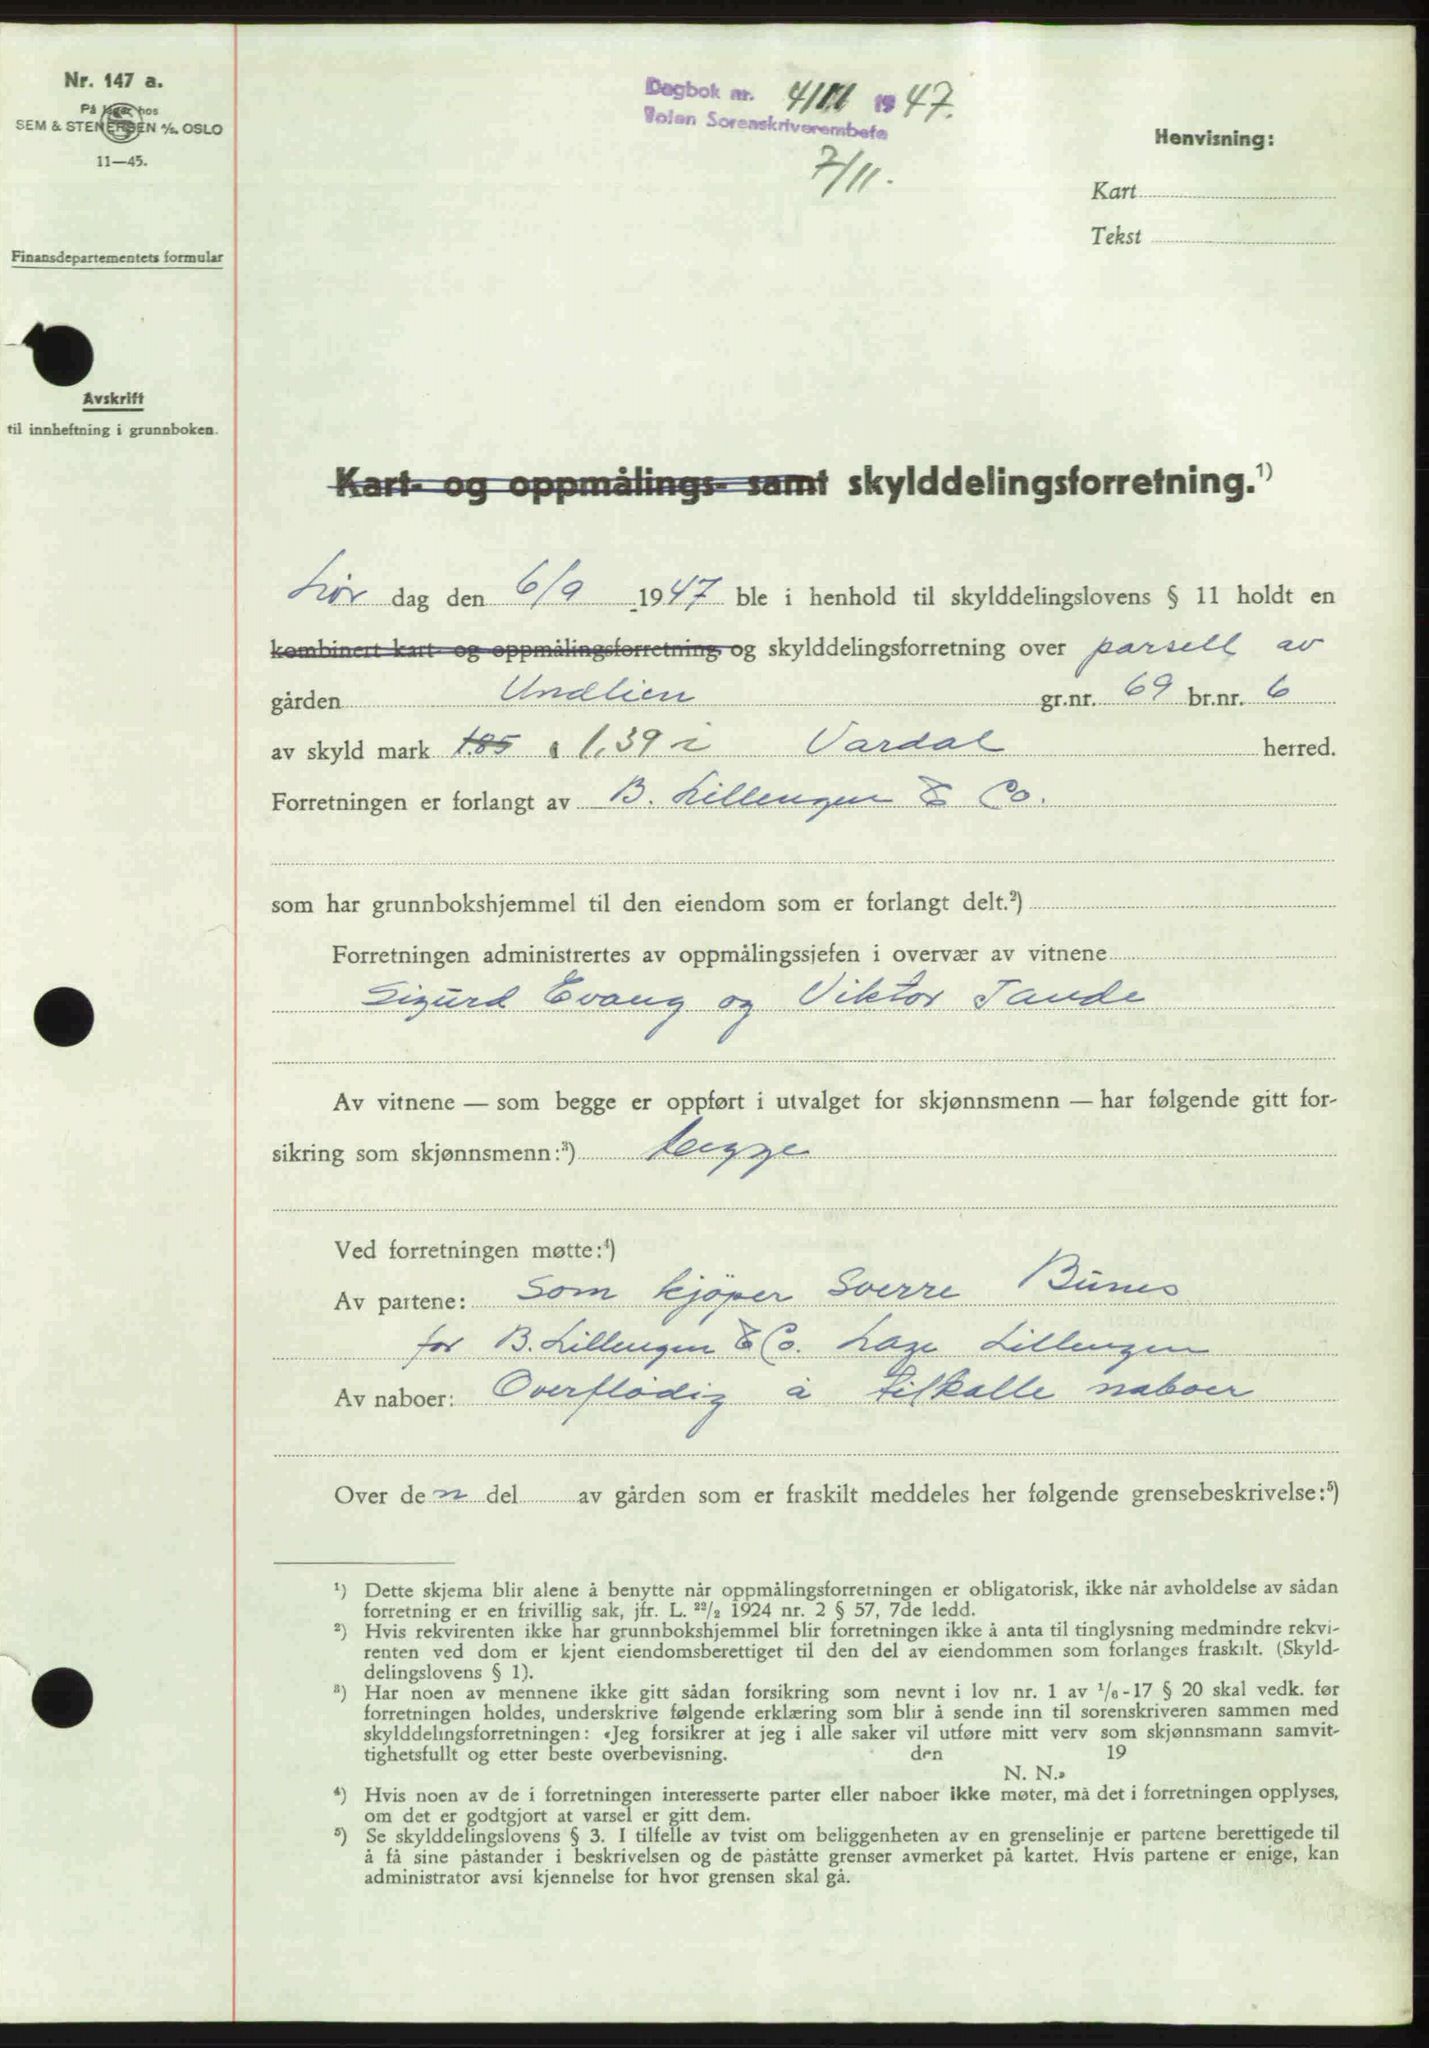 Nr. 147 a.
På lager hos
SEM & STENERSEN A/S. OSLO
11—45.
Finansdepartementets formular
Avskrift
til innheftning i grunnboken.
Dagbok nr. 19 47.
Toten Sorenskriverembete
7/11.
Henvisning:
Kart
Tekst
Kart- og oppmålings- samt skylddelingsforretning.¹)
Lør dag den 6/9 1947 ble i henhold til skylddelingslovens § 11 holdt en
kombinert kart- og oppmålingsforretning og skylddelingsforretning over parsell av
gården Undlien gr.nr. 69 br.nr. 6
av skyld mark 1.85 1,39 i Vardal herred.
Forretningen er forlangt av B. Lillengen & Co.
som har grunnbokshjemmel til den eiendom som er forlangt delt.²)
Forretningen administrertes av oppmålingssjefen i overvær av vitnene
Sigurd Evang og Viktor Tande
Av vitnene — som begge er oppført i utvalget for skjønnsmenn — har følgende gitt for-
sikring som skjønnsmenn:³) begge
Ved forretningen møtte:⁴)
Av partene: Som kjøper Sverre Bünes
for B. Lillengen & Co. Lage Lillengen
Av naboer: Overflødig å tilkalle naboer
Over den del av gården som er fraskilt meddeles her følgende grensebeskrivelse:⁵)
¹) Dette skjema blir alene å benytte når oppmålingsforretningen er obligatorisk, ikke når avholdelse av sådan
forretning er en frivillig sak, jfr. L. ²²/₂ 1924 nr. 2 § 57, 7de ledd.
²) Hvis rekvirenten ikke har grunnbokshjemmel blir forretningen ikke å anta til tinglysning medmindre rekvi-
renten ved dom er kjent eiendomsberettiget til den del av eiendommen som forlanges fraskilt. (Skyld-
delingslovens § 1).
³) Har noen av mennene ikke gitt sådan forsikring som nevnt i lov nr. 1 av ¹/₆-17 § 20 skal vedk. før
forretningen holdes, underskrive følgende erklæring som blir å sende inn til sorenskriveren sammen med
skylddelingsforretningen: «Jeg forsikrer at jeg i alle saker vil utføre mitt verv som skjønnsmann samvit-
tighetsfullt og etter beste overbevisning. den 19
N. N.»
⁴) Hvis noen av de i forretningen interesserte parter eller naboer ikke møter, må det i forretningen opplyses,
om det er godtgjort at varsel er gitt dem.
⁵) Se skylddelingslovens § 3. I tilfelle av tvist om beliggenheten av en grenselinje er partene berettigede til
å få sine påstander i beskrivelsen og de påståtte grenser avmerket på kartet. Hvis partene er enige, kan
administrator avsi kjennelse for hvor grensen skal gå.